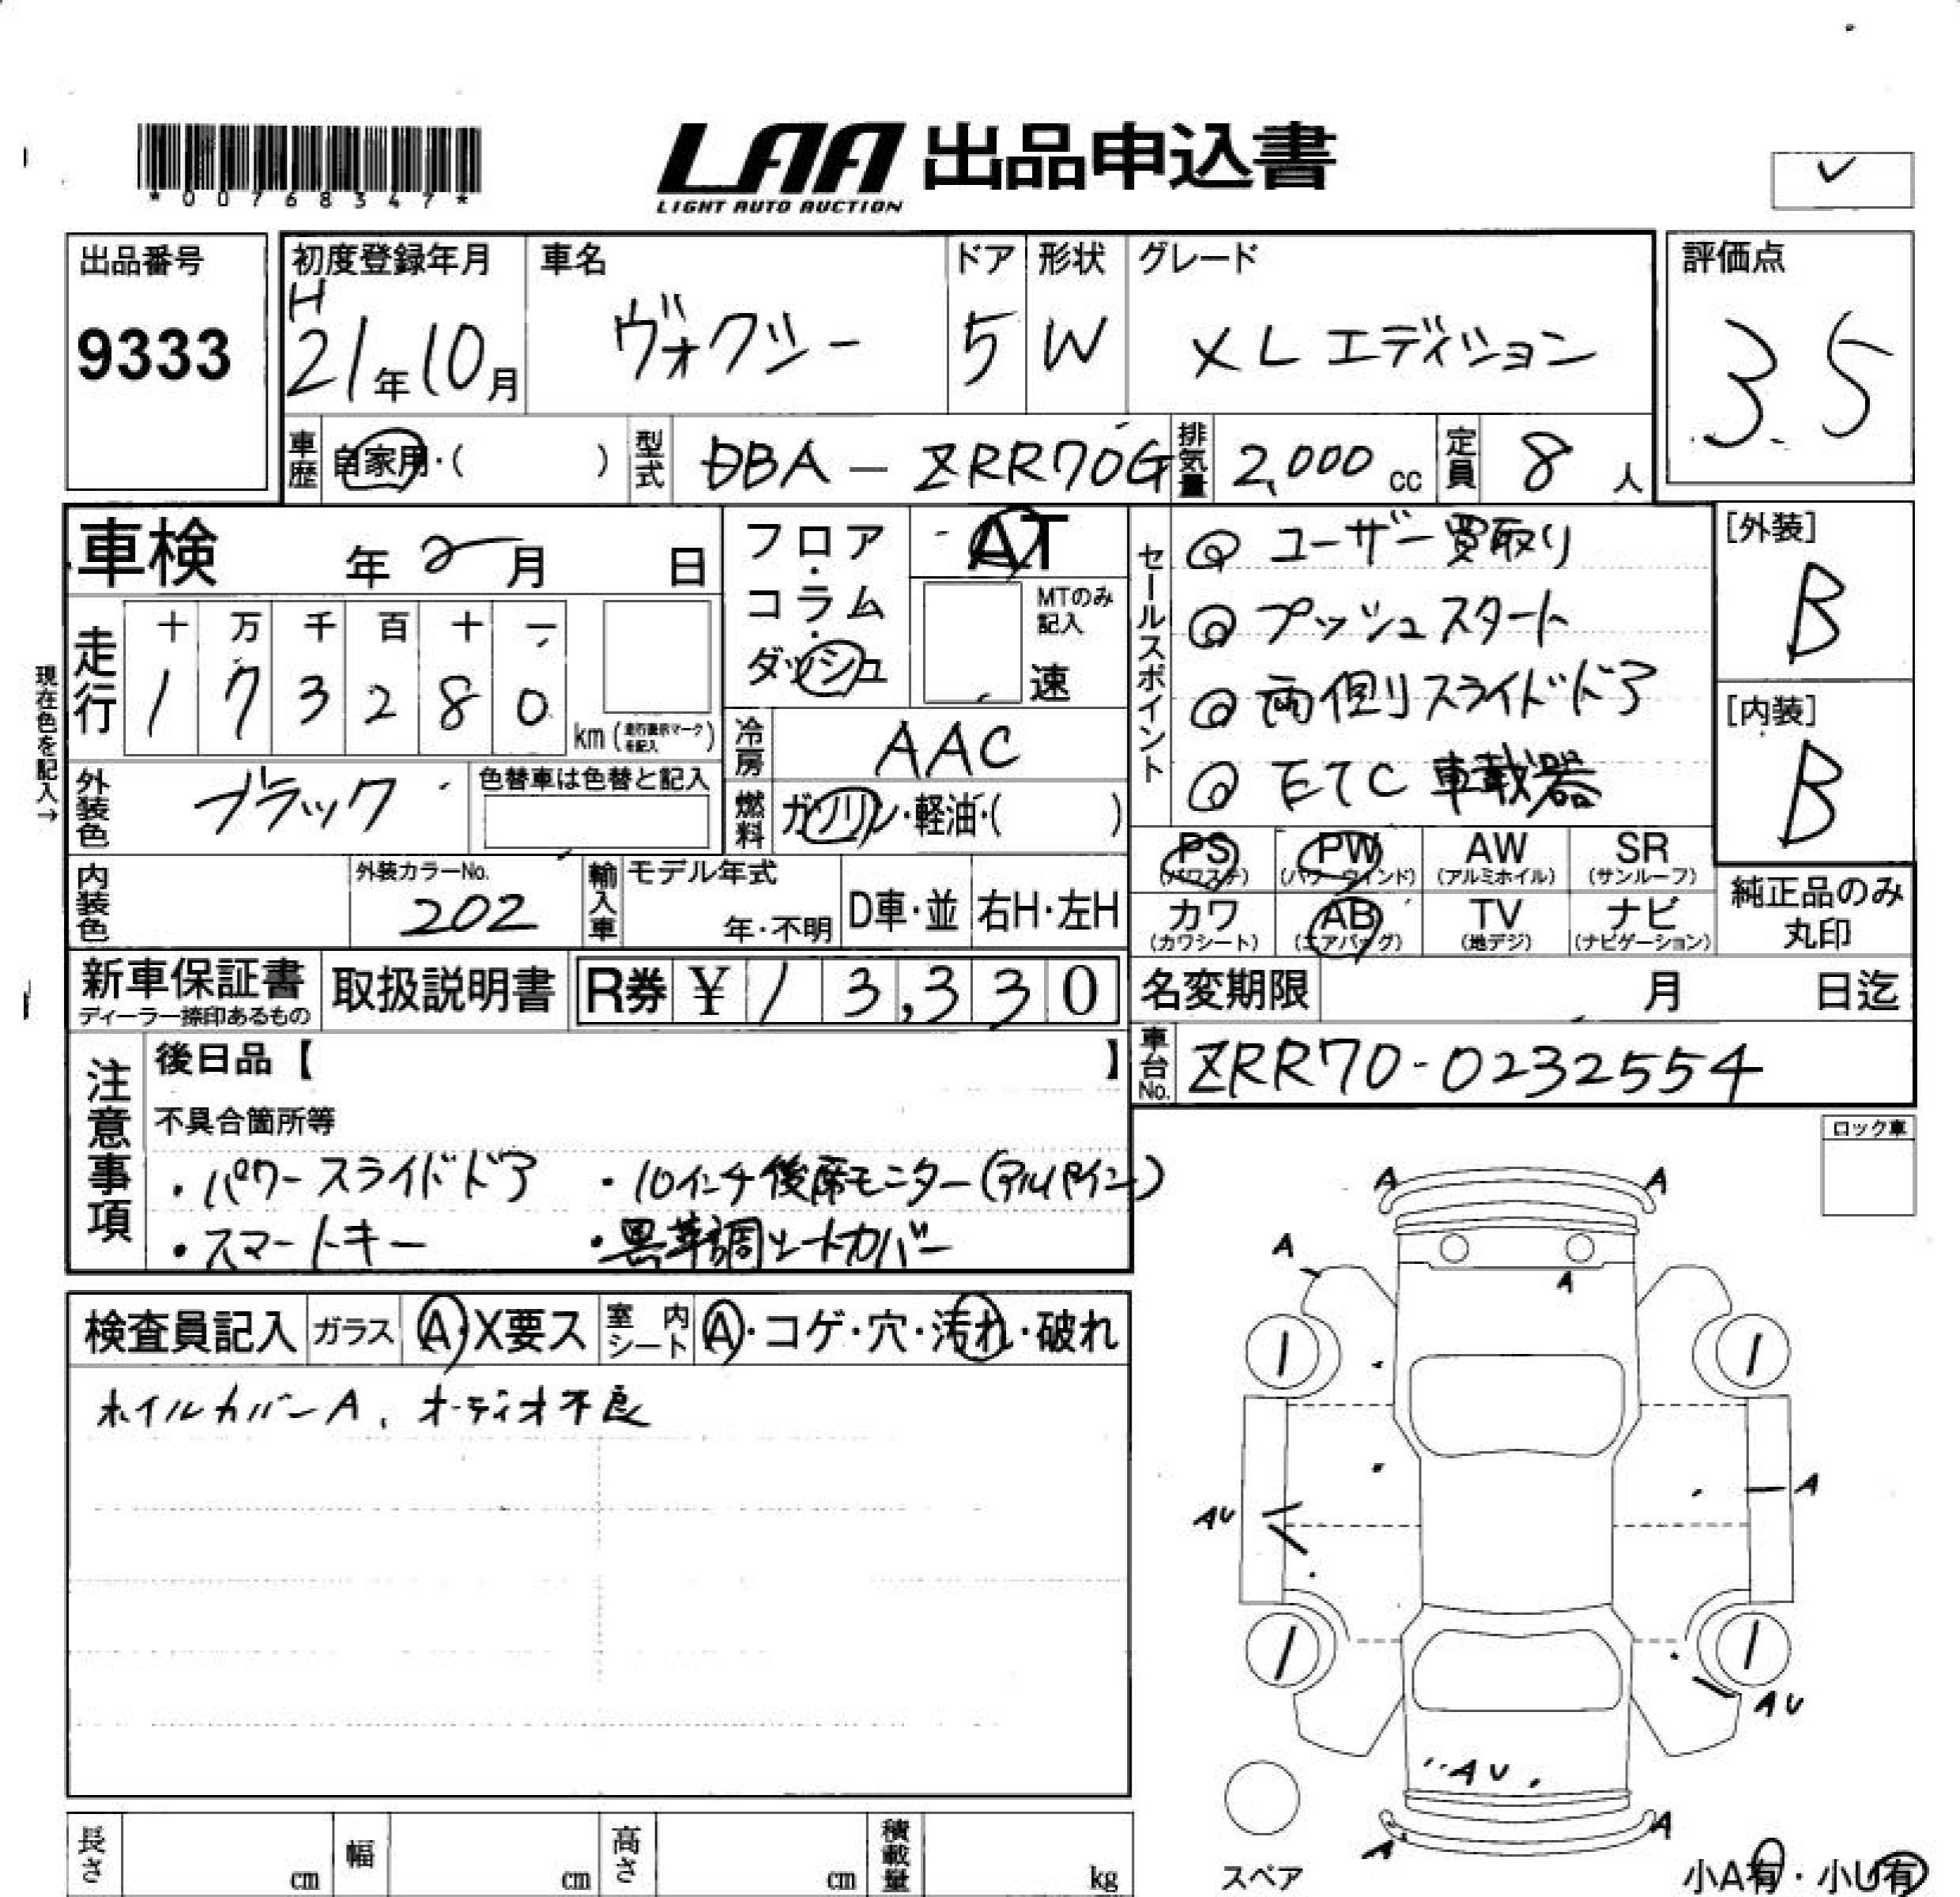 *00768347*
LAA 出品申込書
LIGHT AUTO AUCTION
出品番号
9333
初度登録年月
H
21年10月
車名
ヴォクシー
ドア
5
形状
W
グレード
XLエディション
評価点
3.5
車歴
自家用・( )
型式
DBA-ZRR70G
排気量
2,000 cc
定員
8 人
車検 年 2月 日
現在色を記入→
走行
十 万 千 百 十 一
1 7 3 2 8 0
km
外装色
ブラック
色替車は色替と記入
内装色
外装カラーNo.
202
輸入車
モデル年式
年・不明
D車・並
右H・左H
フロア・コラム・ダッシュ
AT
MTのみ記入
速
冷房
AAC
燃料
ガソリン・軽油・( )
セールスポイント
◎ ユーザー買取り
◎ プッシュスタート
◎ 両側スライドドア
◎ ETC車載器
PS
(パワステ)
PW
(パワーウインド)
AW
(アルミホイル)
SR
(サンルーフ)
カワ
(カワシート)
AB
(エアバッグ)
TV
(地デジ)
ナビ
(ナビゲーション)
[外装]
B
[内装]
B
純正品のみ
丸印
新車保証書
ディーラー捺印あるもの
取扱説明書
R券 ¥ 13,330
名変期限 月 日迄
車台No.
ZRR70-0232554
注意事項
後日品【 】
不具合箇所等
・パワースライドドア ・10インチ後席モニター(アルパイン)
・スマートキー ・黒革調シートカバー
ロック車
検査員記入
ガラス
A・X要ス
室内シート
A・コゲ・穴・汚れ・破れ
ホイルカバーA、オーディオ不良
A A
A
A
1 1
AU
A
1 1
AU
AU
A A
スペア
小A有・小U有
長さ cm
幅 cm
高さ cm
積載量 kg